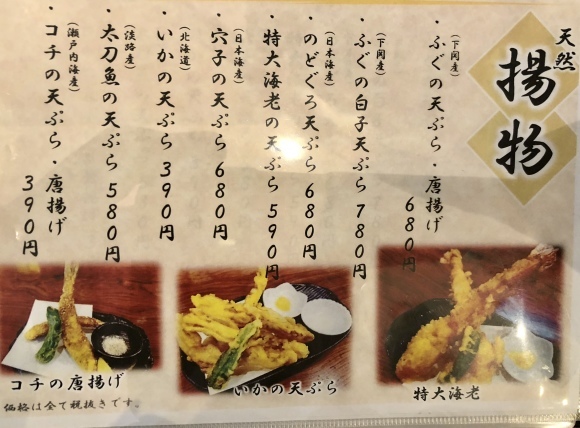 天然
揚物
(下関産)
・ふぐの天ぷら・唐揚げ 680円
(下関産)
・ふぐの白子天ぷら 780円
(日本海産)
・のどぐろ天ぷら 680円
・特大海老の天ぷら 590円
(日本海産)
・穴子の天ぷら 680円
(北海道)
・いかの天ぷら 390円
(淡路産)
・太刀魚の天ぷら 580円
(瀬戸内海産)
・コチの天ぷら・唐揚げ 390円
コチの唐揚げ
いかの天ぷら
特大海老
価格は全て税抜きです。